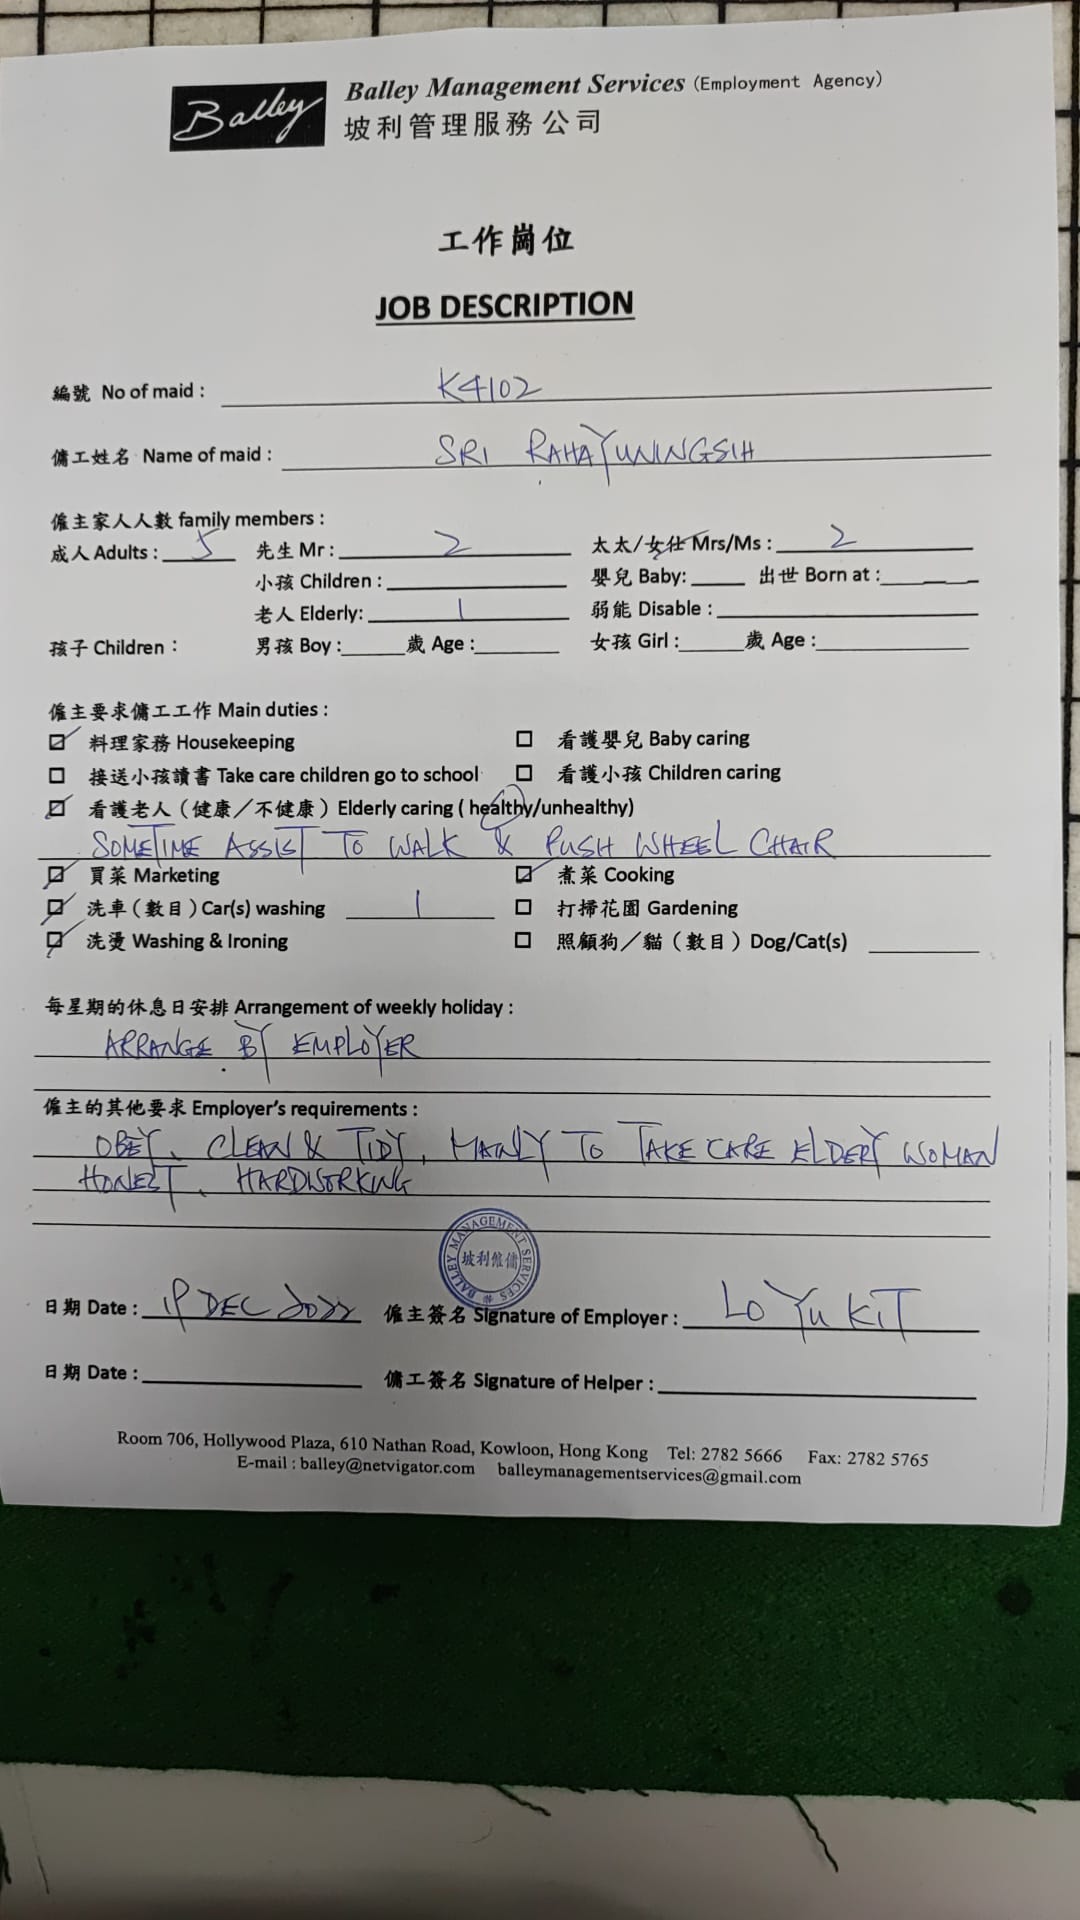 Balley Balley Management Services (Employment Agency)
坡利管理服務公司
工作崗位
JOB DESCRIPTION
編號 No of maid : K4102
傭工姓名 Name of maid : SRI RAHAYUNINGSIH
僱主家人人數 family members :
成人 Adults : 5 先生 Mr : 2 太太/女仕 Mrs/Ms : 2
小孩 Children : 嬰兒 Baby: 出世 Born at :
老人 Elderly: 1 弱能 Disable :
孩子 Children : 男孩 Boy : 歲 Age : 女孩 Girl : 歲 Age :
僱主要求傭工工作 Main duties :
☑ 料理家務 Housekeeping ☐ 看護嬰兒 Baby caring
☐ 接送小孩讀書 Take care children go to school ☐ 看護小孩 Children caring
☑ 看護老人（健康／不健康）Elderly caring ( healthy/unhealthy)
SOMETIME ASSIST TO WALK & PUSH WHEEL CHAIR
☑ 買菜 Marketing ☑ 煮菜 Cooking
☑ 洗車（數目）Car(s) washing 1 ☐ 打掃花園 Gardening
☑ 洗燙 Washing & Ironing ☐ 照顧狗／貓（數目）Dog/Cat(s)
每星期的休息日安排 Arrangement of weekly holiday :
ARRANGE BY EMPLOYER
僱主的其他要求 Employer's requirements :
OBEY, CLEAN & TIDY, MAINLY TO TAKE CARE ELDERY WOMAN
HONEST, HARDWORKING
BALLEY MANAGEMENT SERVICES
坡利僱傭
日期 Date : 19 DEC 2022 僱主簽名 Signature of Employer : LO YU KIT
日期 Date : 傭工簽名 Signature of Helper :
Room 706, Hollywood Plaza, 610 Nathan Road, Kowloon, Hong Kong Tel: 2782 5666 Fax: 2782 5765
E-mail : balley@netvigator.com balleymanagementservices@gmail.com